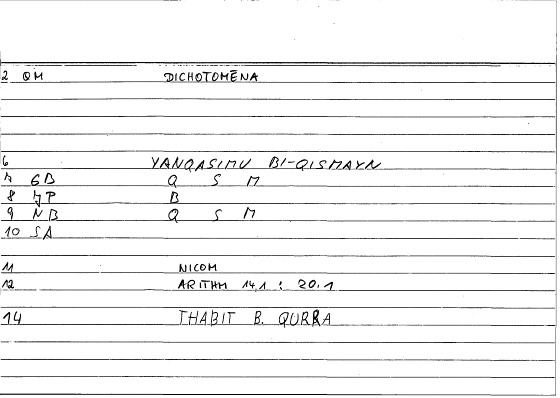 2 QM DICHOTOMENA
6 YANQASIMU BI-QISMAYN
7 GB Q S M
8 JP B
9 NB Q S M
10 SA
11 NICOM
12 ARITHM 14,1 : 20,1
14 THABIT B. QURRA